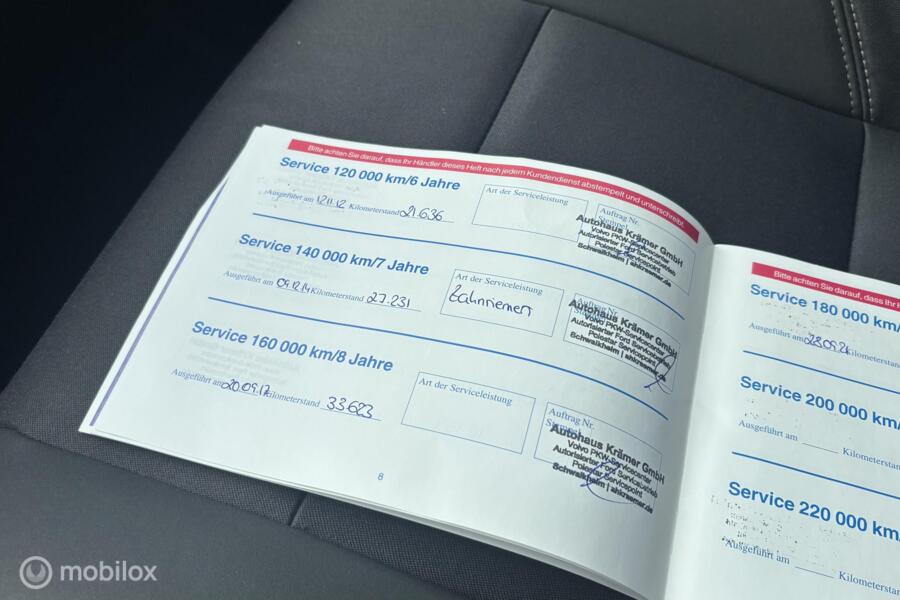 Bitte achten Sie darauf, dass Ihr Händler dieses Heft nach jedem Kundendienst abstempelt und unterschreibt.
Service 120 000 km/6 Jahre
Ausgeführt am 12.11.12 Kilometerstand 21.636
Art der Serviceleistung
Auftrag Nr.
Stempel
Autohaus Krämer GmbH
Volvo PKW-Servicecenter
Autorisierter Ford Servicebetrieb
Polestar Servicepoint
Schwaikheim | ahkraemer.de
Service 140 000 km/7 Jahre
Ausgeführt am 09.12.14 Kilometerstand 27.231
Art der Serviceleistung
Zahnriemen
Autohaus Krämer GmbH
Volvo PKW-Servicecenter
Autorisierter Ford Servicebetrieb
Polestar Servicepoint
Schwaikheim | ahkraemer.de
Service 160 000 km/8 Jahre
Ausgeführt am 20.09.17 Kilometerstand 33.623
Art der Serviceleistung
Auftrag Nr.
Stempel
Autohaus Krämer GmbH
Volvo PKW-Servicecenter
Autorisierter Ford Servicebetrieb
Polestar Servicepoint
Schwaikheim | ahkraemer.de
8
Bitte achten Sie darauf, dass Ihr H
Service 180 000 km/
Ausgeführt am 28.09.21 Kilometerstand
Service 200 000 km/
Ausgeführt am Kilometers
Service 220 000 km/
Ausgeführt am Kilometerst
mobilox